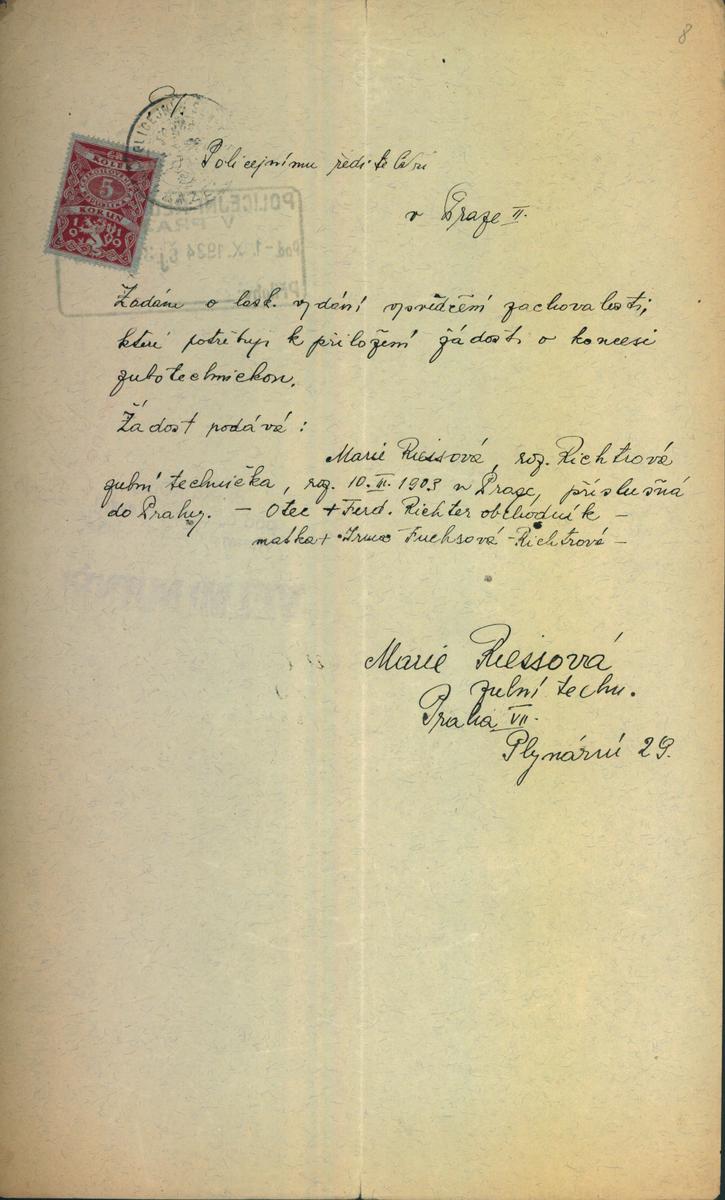 8
Policejnímu ředitelství
v Praze II.
KOLEK
5
KORUN
1919
Žádám o lask. vydání vysvědčení zachovalosti,
které potřebuji k přiložení žádosti o koncesi
zubotechnickou.
Žádost podává:
Marie Riessová, roz. Richtrová
zubní technička, roz. 10. 1903 v Praze, příslušná
do Prahy. – Otec + Ferd. Richter obchodník –
matka + Irma Fuchsová-Richtrová –
Marie Riessová
zubní techn.
Praha VII.
Plynární 29.